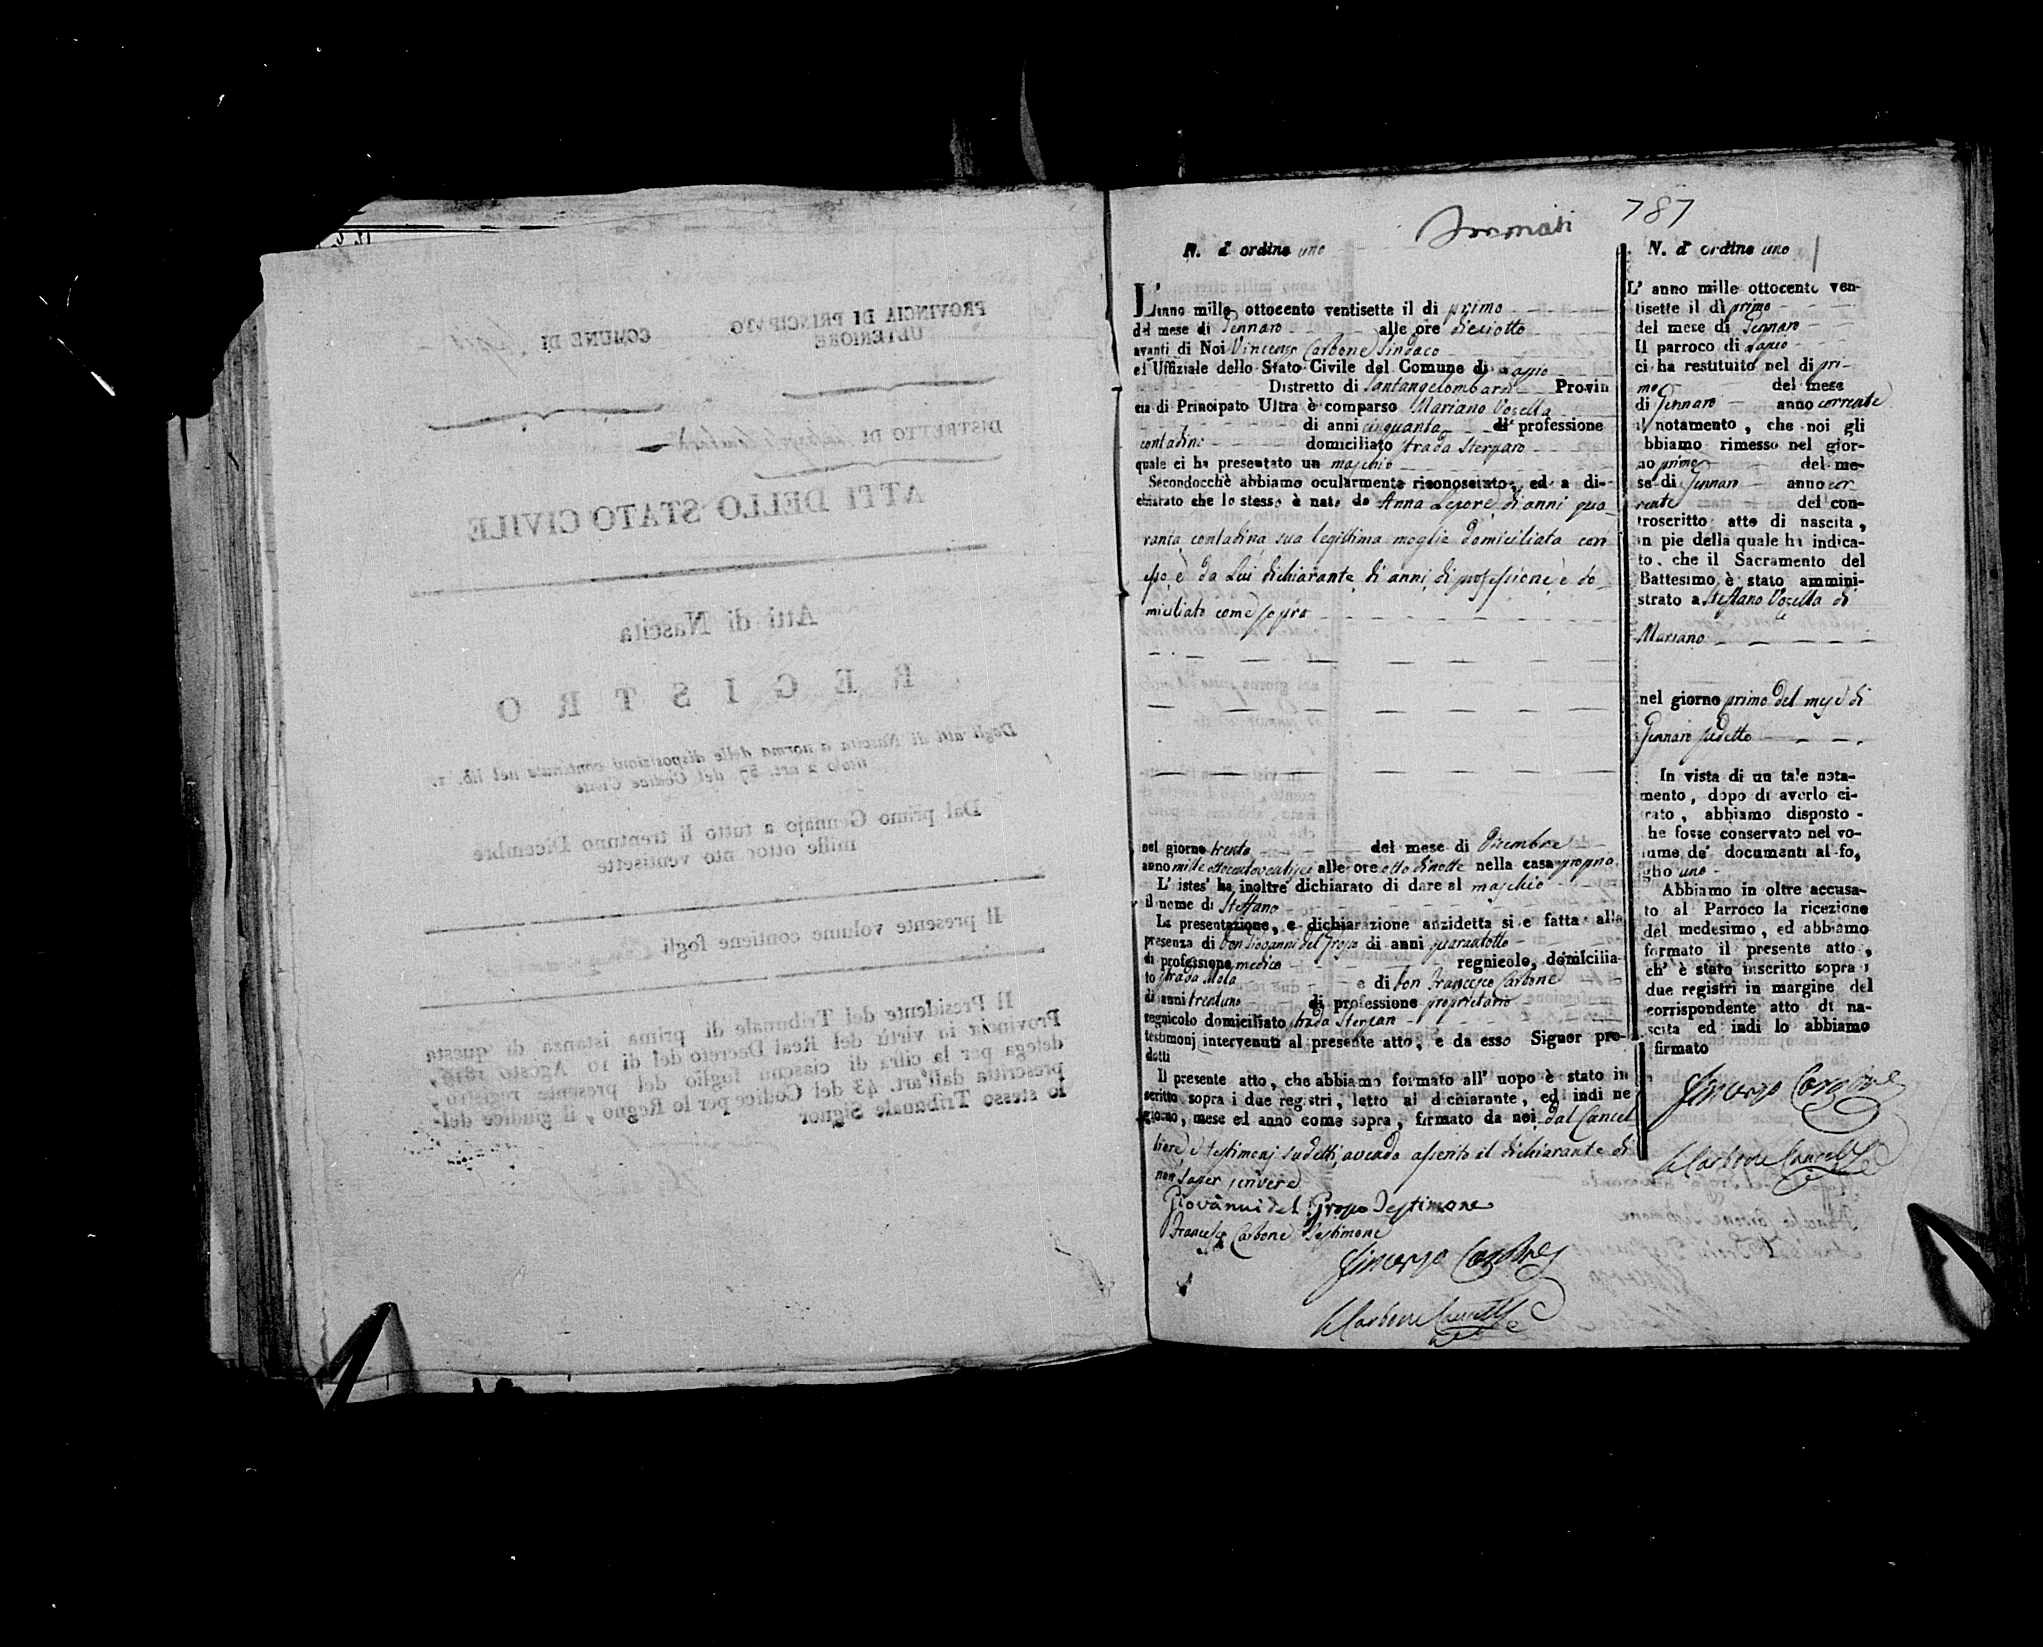 787
N. d' ordine uno
L'anno mille ottocento ventisette il di primo
del mese di Gennaro alle ore dieciotto
avanti di Noi Vincenzo Carbone Sindaco
ed Uffiziale dello Stato Civile del Comune di Lapio
Distretto di Santangelombardi Provin
cia di Principato Ultra è comparso Mariano Vozella
di anni cinquanta di professione
contadino domiciliato strada Sterparo
quale ci ha presentato un maschio
Secondocchè abbiamo ocularmente riconosciuto, ed a di-
chiarato che lo stesso è nato da Anna Lepore di anni qua-
ranta contadina sua legittima moglie domiciliata con
esso, è da Lui dichiarante di anni, di professione, è do-
miciliato come sopra
nel giorno trenta del mese di Dicembre
anno mille ottocentoventisei alle ore otto di notte nella casa propria
L' istes' ha inoltre dichiarato di dare al maschio
il nome di Steffano
La presentazione, e dichiarazione anzidetta si e fatta alla
presenza di Don Giovanni del Grosso di anni quarantotto
di professione medico regnicolo, domicilia-
to strada Mola e di Don Francesco Carbone
di anni trentuno di professione proprietario
regnicolo domiciliato strada Sterpan
testimonj intervenuti al presente atto, e da esso Signor pro-
dotti
Il presente atto, che abbiamo formato all' uopo è stato in
scritto sopra i due registri, letto al dichiarante, ed indi ne
giorno, mese ed anno come sopra, firmato da noi dal Cancel
liere, è testimonj sudetti, avendo asserito il dichiarante di
non saper scrivere
Giovanni del Grosso Testimone
Francesco Carbone Testimone
Vincenzo Carbone
Carbone Cancell.
N. d' ordine uno
L' anno mille ottocento ven-
tisette il di primo
del mese di Gennaro
Il parroco di Lapio
ci ha restituito nel di pri-
mo del mese
di Gennaro anno corrente
il notamento, che noi gli
abbiamo rimesso nel gior-
no primo del me-
se di Gennaro anno cor-
rente del con-
troscritto atto di nascita,
in pie della quale ha indica-
to, che il Sacramento del
Battesimo è stato ammini-
strato a Steffano Vozella di
Mariano
nel giorno primo del mese di
Gennaro sudetto
In vista di un tale nota-
mento, dopo di averlo ci-
frato, abbiamo disposto
che fosse conservato nel vo-
lume de' documenti al fo,
glio uno
Abbiamo in oltre accusa-
to al Parroco la ricezione
del medesimo, ed abbiamo
formato il presente atto,
ch' è stato inscritto sopra i
due registri in margine del
corrispondente atto di na-
scita ed indi lo abbiamo
firmato
Vincenzo Carbone
Carbone Cancell.
PROVINCIA DI PRINCIPATO
ULTERIORE
COMUNE DI Lapio
DISTRETTO DI
ATTI DELLO STATO CIVILE
Atti di Nascita
REGISTRO
Degli atti di Nascita a norma delle disposizioni contenute nel lib. 1.
titolo 2 art. 57 del Codice Civile
Dal primo Gennajo a tutto li trentuno Dicembre
mille ottocento ventisette
Il presente volume contiene fogli
Il Presidente del Tribunale di prima istanza di questa
Provincia in virtù del Real Decreto del di 10 Agosto 1816,
delega per la cifra di ciascun foglio del presente registro,
prescritta dall'art. 43 del Codice per lo Regno, il giudice del-
lo stesso Tribunale Signor